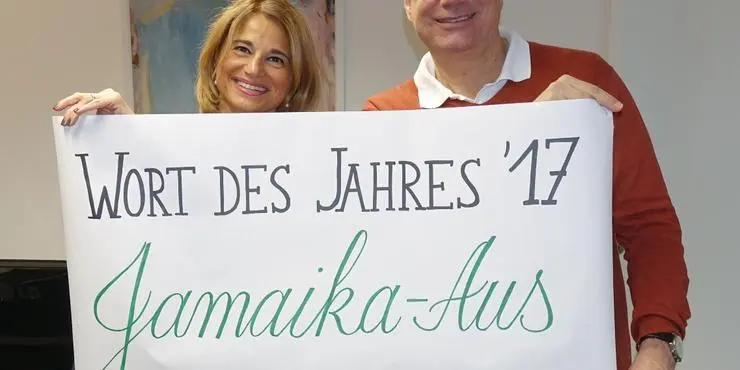 Wort des Jahres '17
Jamaika-Aus